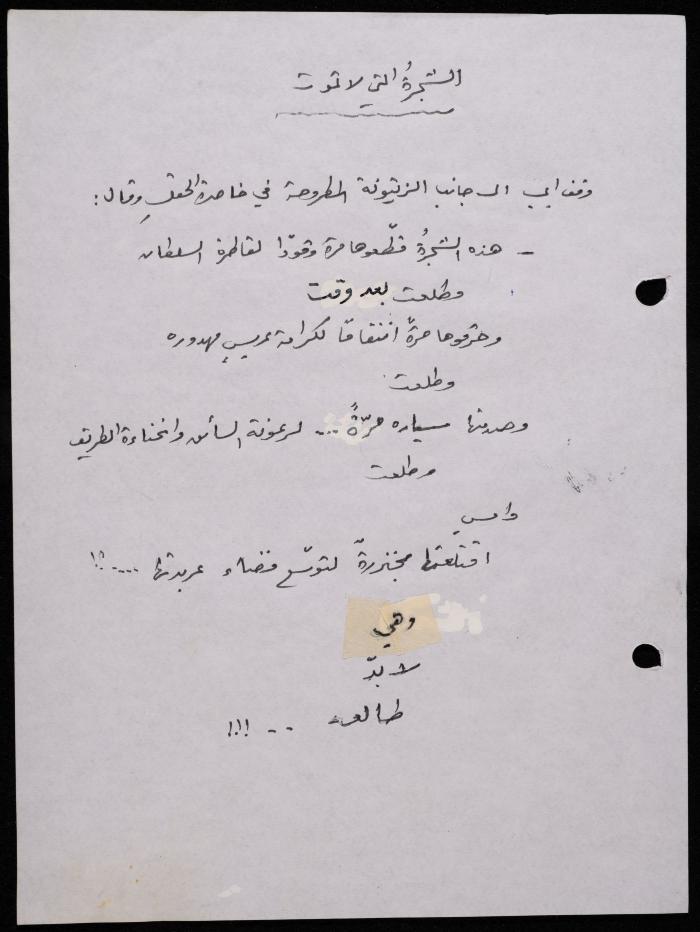 الشجرةُ التي لا تموت
وقف أبي إلى جانب الزيتونة المطروحة في خاصرة الحقلِ وقال:
– هذه الشجرةُ قطّعوها مرة وقودًا لقاطرة السلطان
وطلعت بعد وقت
وحرقوها مرةً انتقامًا لكرامة عريسٍ مهدوره
وطلعت
وصدمتها سياره مرّةً ... لرعونة السائق وانحناءة الطريق
وطلعت
وامس
اقتلعتها مجنزرةٌ لتوسّع فضاء عربدتها ....؟!
وهي
لا بدّ
طالعه .. !!!